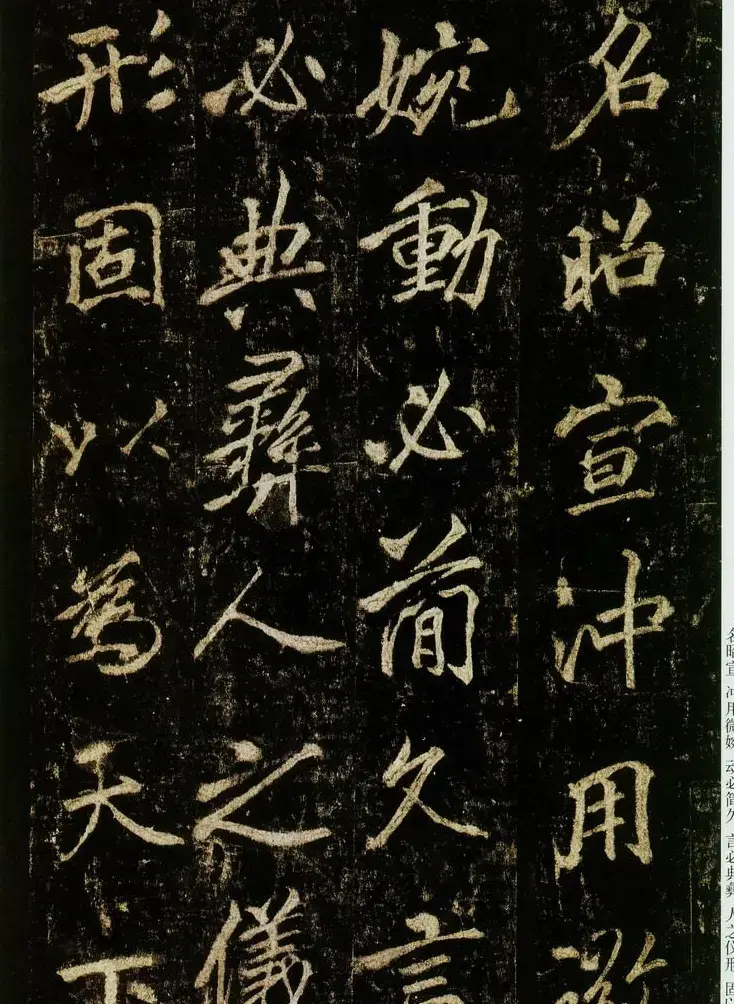 名昭宣沖用微
婉動必簡久言
必典彝人之儀
形固以為天下
名昭宣 冲用微婉 动必简久 言必典彝 人之仪形 固以